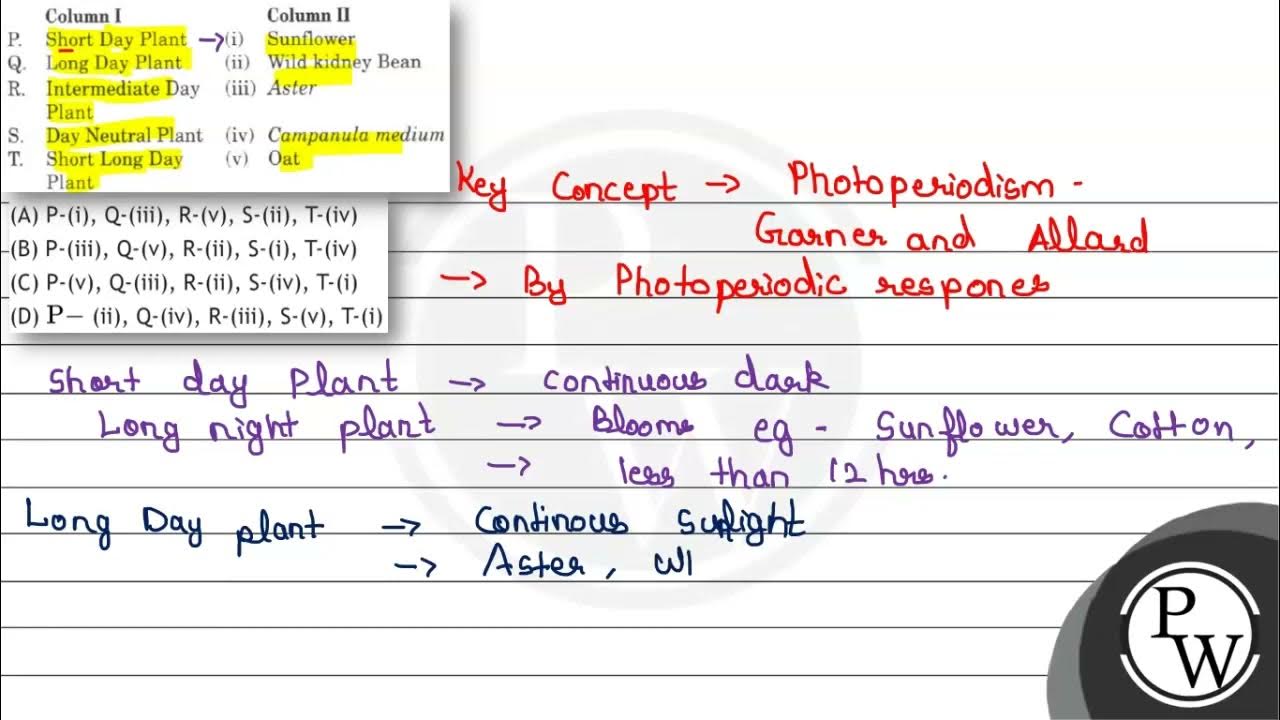 Column I Column II
P. Short Day Plant → (i) Sunflower
Q. Long Day Plant (ii) Wild kidney Bean
R. Intermediate Day (iii) Aster
Plant
S. Day Neutral Plant (iv) Campanula medium
T. Short Long Day (v) Oat
Plant
(A) P-(i), Q-(iii), R-(v), S-(ii), T-(iv)
(B) P-(iii), Q-(v), R-(ii), S-(i), T-(iv)
(C) P-(v), Q-(iii), R-(ii), S-(iv), T-(i)
(D) P– (ii), Q-(iv), R-(iii), S-(v), T-(i)
Key Concept → Photoperiodism -
Garner and Allard
→ By Photoperiodic respones
Short day Plant → continuous dark
Long night plant → Blooms eg - Sunflower, Cotton,
→ less than 12 hrs.
Long Day plant → Continous sunlight
→ Aster, Wl
PW
PW